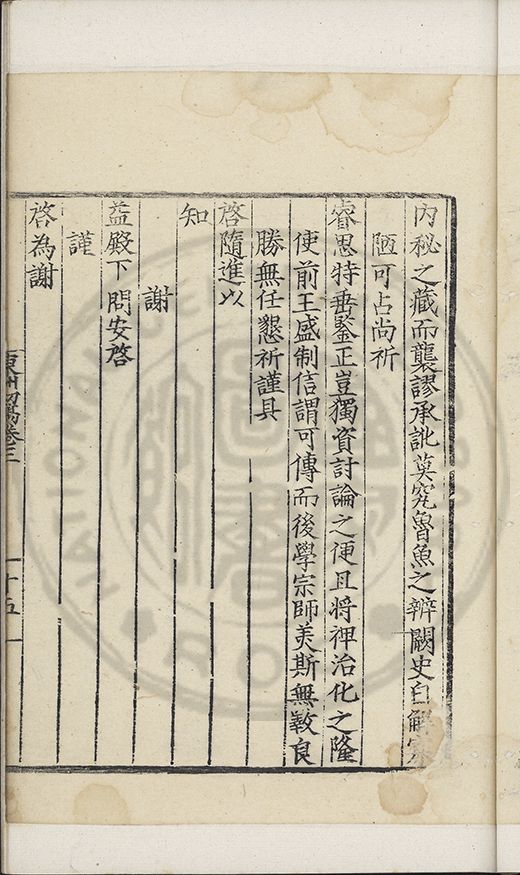 內秘之藏而襲謬承訛莫究魯魚之辨闕史自解
陋可占尚祈
睿思特垂鑒正豈獨資討論之便且将裨治化之隆
使前王盛制信謂可傳而後學宗師美斯無斁良
勝無任懇祈謹具
啓隨進以
知
謝
益殿下問安啓
謹
啓為謝
卷三
十五